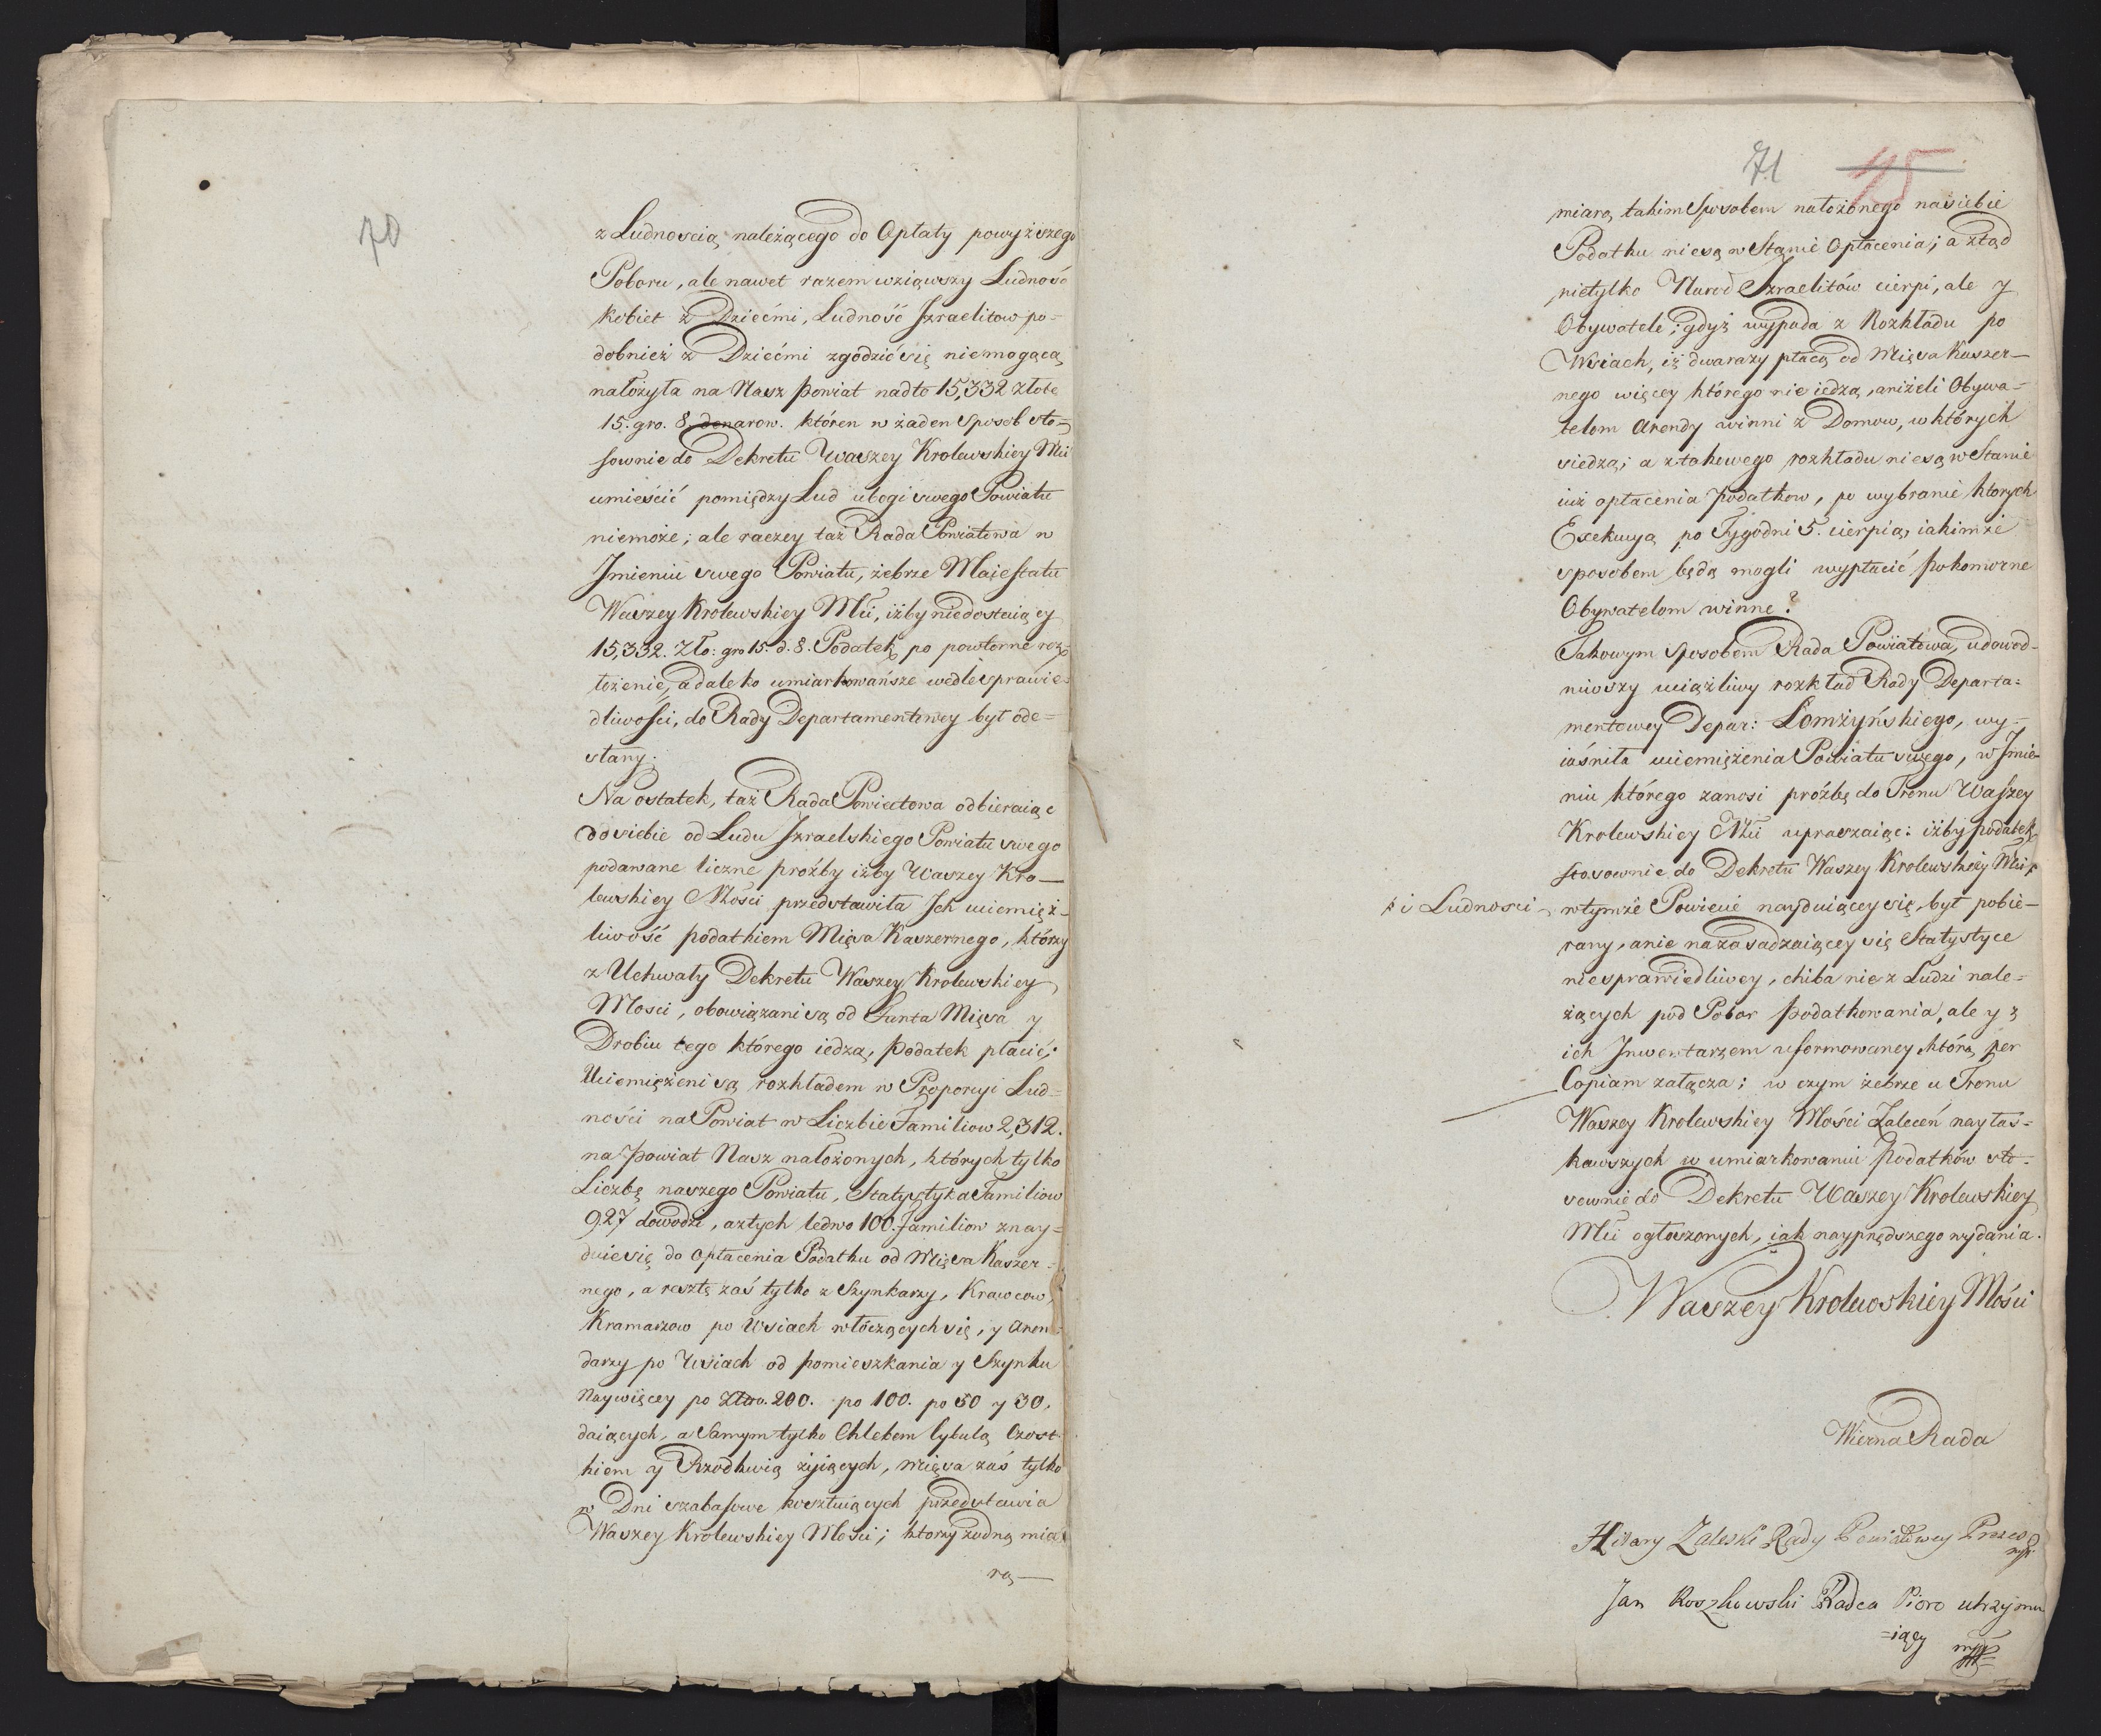 70
z Ludnoscią należącego do Opłaty powyższego
Poboru, ale nawet razem wziąwszy Ludność
kobiet z Dziećmi, Ludność Izraelitow po=
dobnież z Dziećmi zgodzić się niemogącą
nałożyła na Nasz powiat nadto 15,332 złote
15. gro. 8. denarow. któren w żaden Sposob sto=
sownie do Dekretu Waszey Krolewskiey Mci
umieścić pomiędzy Lud ubogi swego Powiatu
niemoże; ale raczey taż Rada Powiatowa w
Imieniu swego Powiatu, żebrze Majestatu
Waszey Krolewskiey Mci, iżby niedostaiący
15,332. Zło: gro 15. d. 8. Podatek po powtorne roz=
łożenie, a daleko umiarkowańsze wedle sprawie=
dliwości, do Rady Departamentowey był ode=
słany.
Na ostatek, taż Rada Powiatowa odbieraiąc
do siebie od Ludu Izraelskiego Powiatu swego
podawane liczne prożby iżby Waszey Kro—
lewskiey Mości przedstawiła Ich uciemięż=
liwość podatkiem Mięsa Kaszernego, którzy
z Uchwały Dekretu Waszey Krolewskiey
Mosci, obowiązani są od Funta Mięsa y
Drobiu tego którego iedzą, podatek płacić;
Uciemiężeni są rozkładem w Proporcyi Lud=
ności na Powiat w Liczbie Familiow 2,312.
na powiat Nasz nałożonych, których tylko
Liczbę naszego Powiatu, Statystyka Familiow
927 dowodzi, a z tych ledwo 100. Familiow znay=
duie się do opłacenia Podatku od Mięsa Kaszer=
nego, a resztę zaś tylko z Szynkarzy, Krawcow,
Kramarzow po Wsiach włóczących się, y Aren=
darzy po Wsiach od pomieszkania y Szynku
naywięcey po Złto. 200. po 100. po 50 y 30.
daiących, a Samym tylko Chlebem Cybulą Czost=
kiem y Rzodkwią żyiących, mięsa zaś tylko
w Dni szabasowe kosztuiących przedstawia
Waszey Krolewskiey Mości; ktorzy żodną mia=
rą —
71 15
miarą takim Sposobem nałożonego na siebie
Podatku nie są w Stanie Opłacenia; a ztąd
nietylko Narod Izraelitów cierpi, ale y
Obywatele; gdyż wypada z Rozkładu po
Wsiach, iż dwa razy płacą od Mięsa Kaszer—
nego więcey którego nie iedzą, aniżeli Obywa=
telom Arendy winni z Domow, w których
siedzą; a z takowego rozkładu nie są w Stanie
iuż opłacenia podatkow, po wybranie ktorych
Exekucyą po Tygodni 5. cierpią, iakimże
sposobem będą mogli wypłacić pokomorne
Obywatelom winne?
Takowym sposobem Rada Powiatowa, udowod=
niwszy uciążliwy rozkład Rady Departa=
mentowey Depar: Łomżyńskiego, wy=
iaśniła uciemiężenia Powiatu swego, w Imie=
niu którego zanosi prożbę do Tronu Waszey
Krolewskiey Mci upraszaiąc: iżby podatek
stosownie do Dekretu Waszey Krolewskiey Mci
i Ludnosci
w tymże Powiecie nayduiącey się, był pobie—
rany, a nie na zasadzaiącey się Statystyce
niesprawiedliwey, chiba nie z Ludzi nale=
żących pod Pobor podatkowania, ale y z
ich Inwentarzem uformowaney którą per
Copiam załącza; w czym żebrze u Tronu
Waszey Krolewskiey Mości Zaleceń nayłas=
kawszych w umiarkowaniu podatków sto=
sownie do Dekretu Waszey Krolewskiey
Mci ogłoszonych, iak nayprędszego wydania.
Waszey Krolewskiey Mości
Wierna Rada
Hilary Zaleski Rady Powiatowey Prezes
mp.
Jan Koszkowski Radca Pioro utrzymu
=iący mp